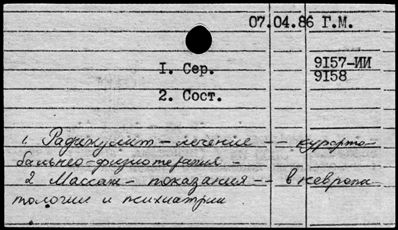 07.04.86 Г.М.
I. Сер. 9I57-ИИ
9I58
2. Сост.
1. Радикулит - лечение -- курорто-
бальнео-физиотерапия -
2 Массаж - показания -- в невропа-
тологии и психиатрии